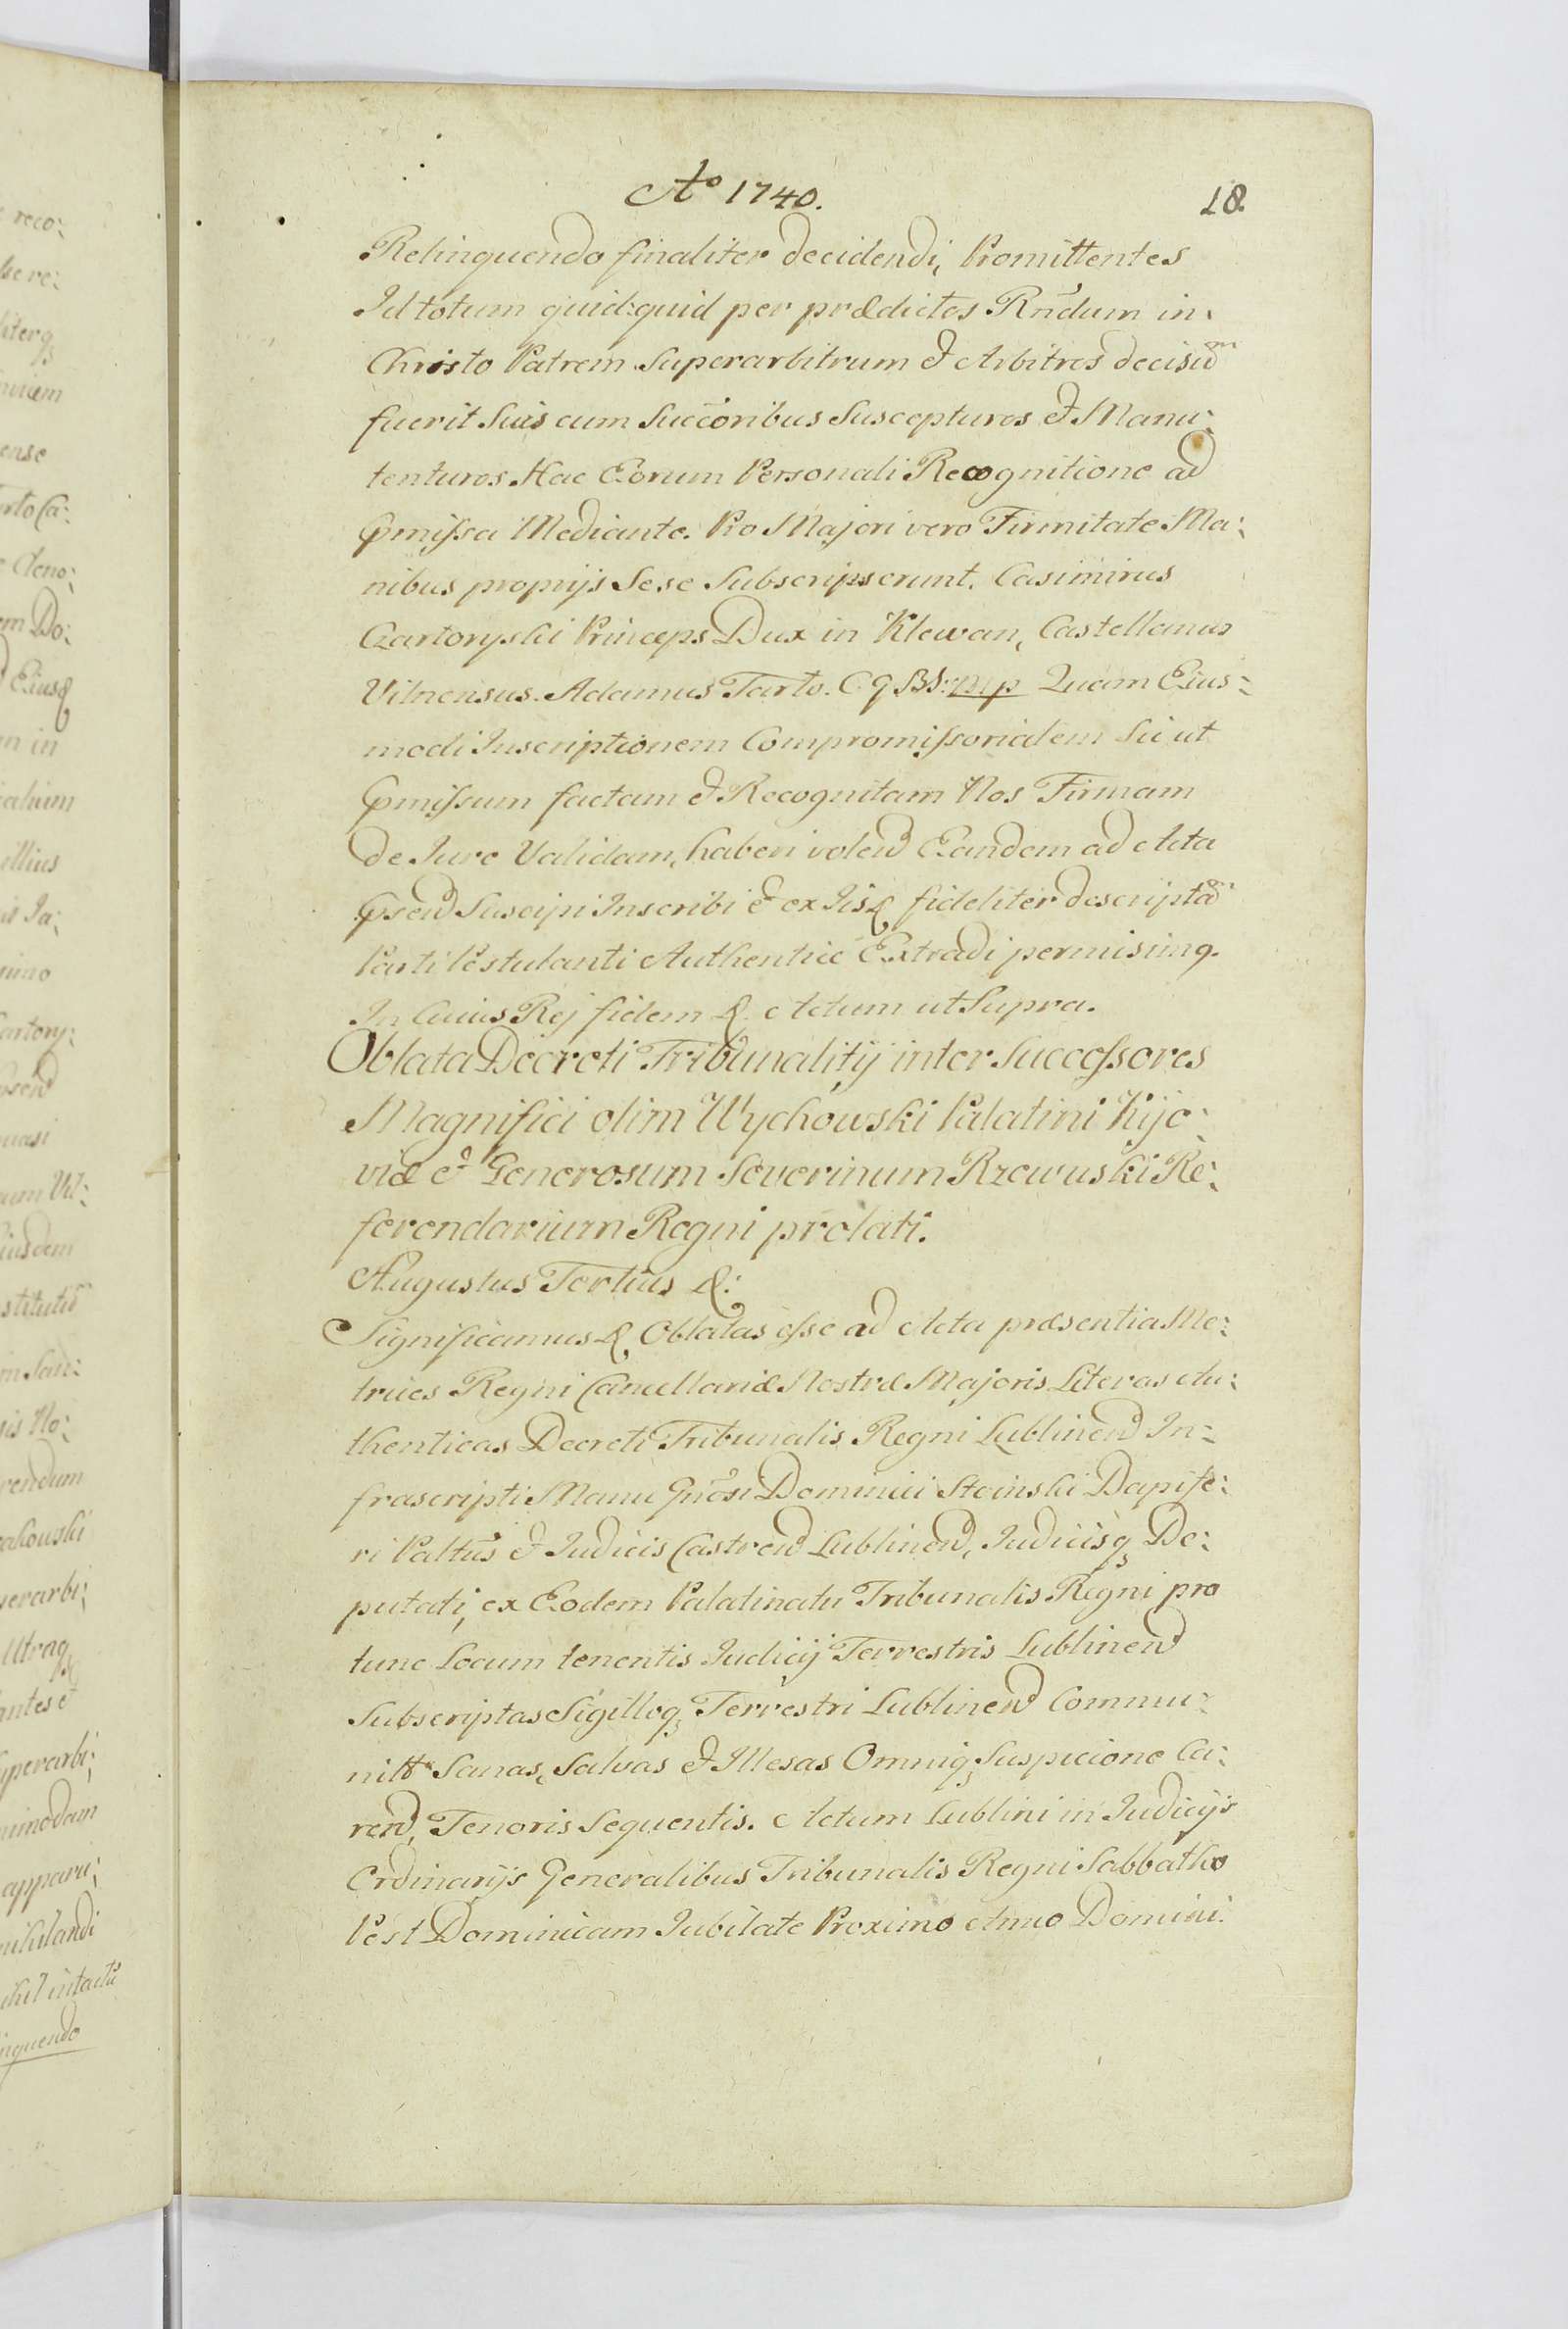 Aº 1740.
18.
Relinquendo finaliter decidendi, Promittentes
Id totum quid:quid per prædictos Rñdum in:
Christo Patrem Superarbitrum et Arbitros decisũm
fuerit Suis cum Succõribus Suscepturos et Manu:
tenturos Hac Eorum Personali Recognitione ad
Pmissa Mediante. Pro Majori vero Firmitate Ma:
nibus proprijs Sese Subscripserunt. Casimirus
Czartoryski Princeps Dux in Klewan, Castellanus
Vilnensus. Adamus Tarło. C G BS: mp Quam Eius:
modi Inscriptionem Compromissorialem Sic ut
Pmissum factam et Recognitam Nos Firmam
de Jure Validam, haberi volend Eandem ad Acta
Psend Suscipi Inscribi et ex Iisq fideliter descriptam
Parti Postulanti Authentice Extradi permisimq.
In Cuius Rej fidem &. Actum ut Supra.
Oblata Decreti Tribunalitij inter Successores
Magnifici olim Wychowski Palatini Kijo:
viæ et Generosum Severinum Rzewuski Re:
ferendarium Regni prolati.
Augustus Tertius &:
Significamus &, Oblatas esse ad Acta præsentia Me:
trices Regni Cancellariæ Nostræ Majoris Literas Au:
thenticas Decreti Tribunalis Regni Lublinend In:
frascripti Manu Gnõsi Dominici Stoinski Dapife:
ri Paltũs et Judicis Castrend Lublinend, Judicisq De:
putati, ex Eodem Palatinatu Tribunalis Regni pro
tunc Locum tenentis Judicij Terrestris Lublinend
Subscriptas Sigilloq Terrestri Lublinend Commu:
nitt Sanas, Salvas et Illesas Omniq Suspicione Ca:
rend, Tenoris Sequentis. Actum Lublini in Judicijs
Ordinarijs Generalibus Tribunalis Regni Sabbatho
Post Dominicam Jubilate Proximo Anno Domini